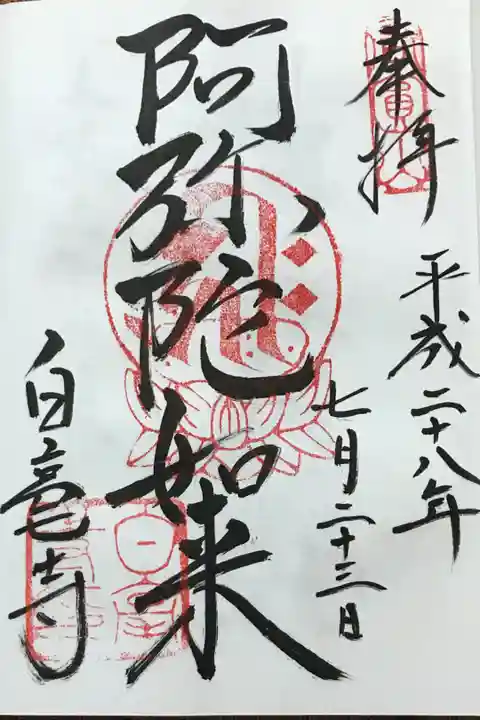 奉拝
平成二十八年
七月二十三日
阿弥陀如来
白毫寺